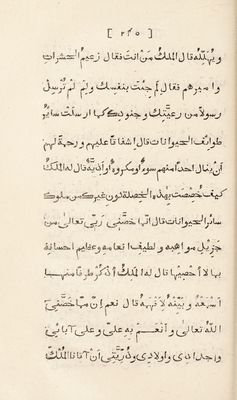 [ ٢٣٥ ]
ويهلّله قال الملك من انت فقال زعيم الحشرات
واميرهم فقال لم جئت بنفسك ولم لم ترسل
رسولا من رعيتك وجنودك كما ارسلت سائر
طوائف الحيوانات قال اشفاقا عليهم ورحمة لهم
أن ينال احدا منهم سوء او مكروه او اذية قال له الملك
كيف خصصت بهذه الخصلة دون غيرك من ملوك
سائر الحيوانات قال انها خصّني ربّي تعالى من
جزيل مواهبه ولطيف انعامه وعظيم احسانه
بها لا أحصيها قال له الملك أذكر طرفا منها
أسمعه وبيّنه لأفهمه قال نعم إنّ مما خصّني
الله تعالى وأنعم به عليّ وعلى آبائي
واجدادي واولادي وذرّيتي أن آتانا الملك